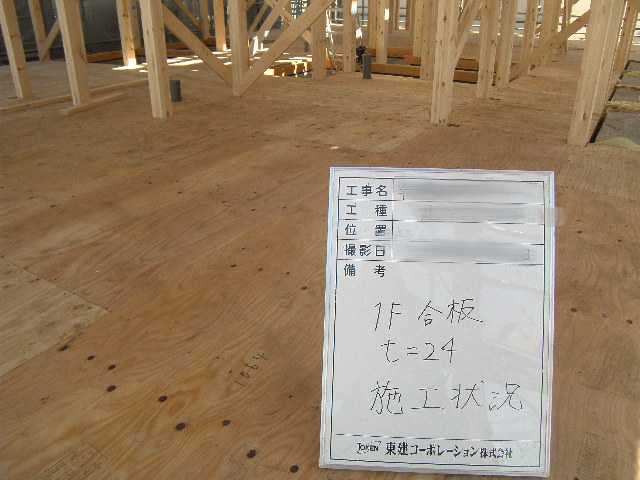 工事名
工 種
位 置
撮影日
備 考
1F 合板
t=24
施工状況
TOKEN 東建コーポレーション株式会社
1664